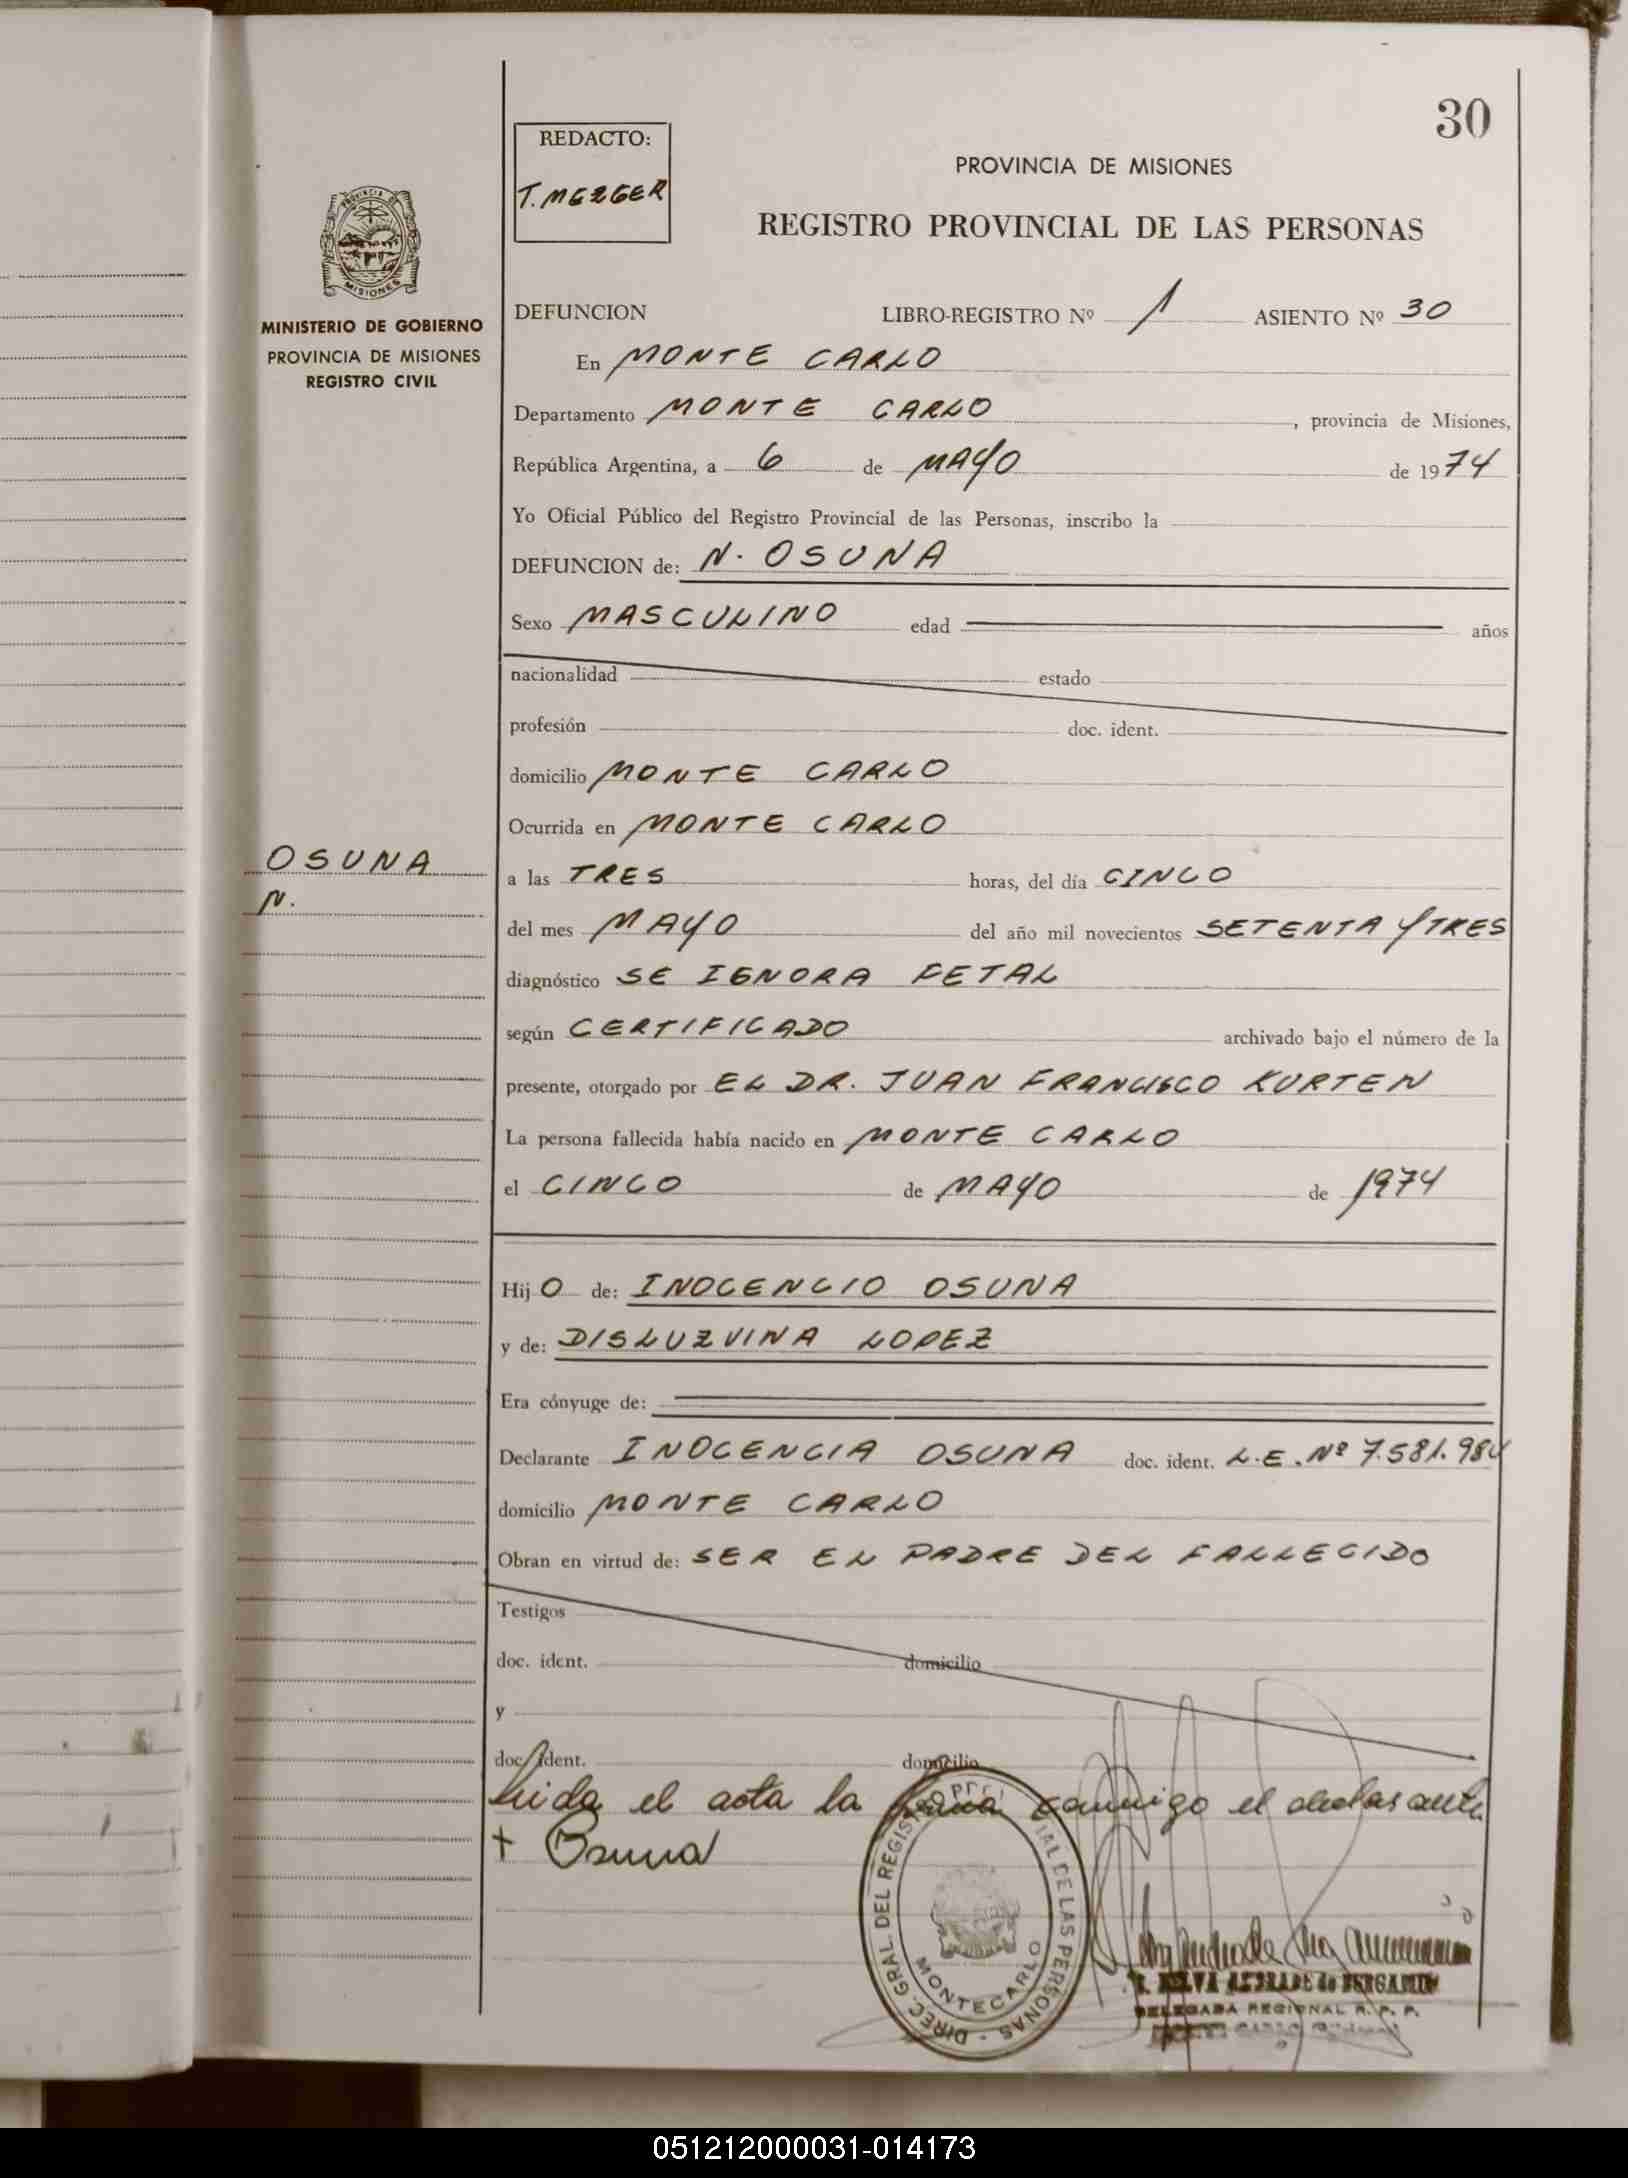 30
REDACTO:
T. MEZGER
PROVINCIA DE MISIONES
REGISTRO PROVINCIAL DE LAS PERSONAS
PROVINCIA DE
MISIONES
MINISTERIO DE GOBIERNO
PROVINCIA DE MISIONES
REGISTRO CIVIL
DEFUNCION LIBRO-REGISTRO Nº 1 ASIENTO Nº 30
En MONTE CARLO
Departamento MONTE CARLO, provincia de Misiones,
República Argentina, a 6 de MAYO de 1974
Yo Oficial Público del Registro Provincial de las Personas, inscribo la
DEFUNCION de: N. OSUNA
Sexo MASCULINO edad años
nacionalidad estado
profesión doc. ident.
domicilio MONTE CARLO
Ocurrida en MONTE CARLO
OSUNA
N.
a las TRES horas, del día CINCO
del mes MAYO del año mil novecientos SETENTA Y TRES
diagnóstico SE IGNORA FETAL
según CERTIFICADO archivado bajo el número de la
presente, otorgado por EL DR. JUAN FRANCISCO KURTEN
La persona fallecida había nacido en MONTE CARLO
el CINCO de MAYO de 1974
Hij O de: INOCENCIO OSUNA
y de: DISLUZVINA LOPEZ
Era cónyuge de:
Declarante INOCENCIA OSUNA doc. ident. L.E. Nº 7.581.984
domicilio MONTE CARLO
Obran en virtud de: SER EL PADRE DEL FALLECIDO
Testigos
doc. ident. domicilio
y
doc. ident. domicilio
Leida el acta la firma conmigo el declarante
+ Osuna
DIREC. GRAL. DEL REGISTRO PROVINCIAL DE LAS PERSONAS -
MONTECARLO
DELEGADA REGIONAL R. P. P.
051212000031-014173